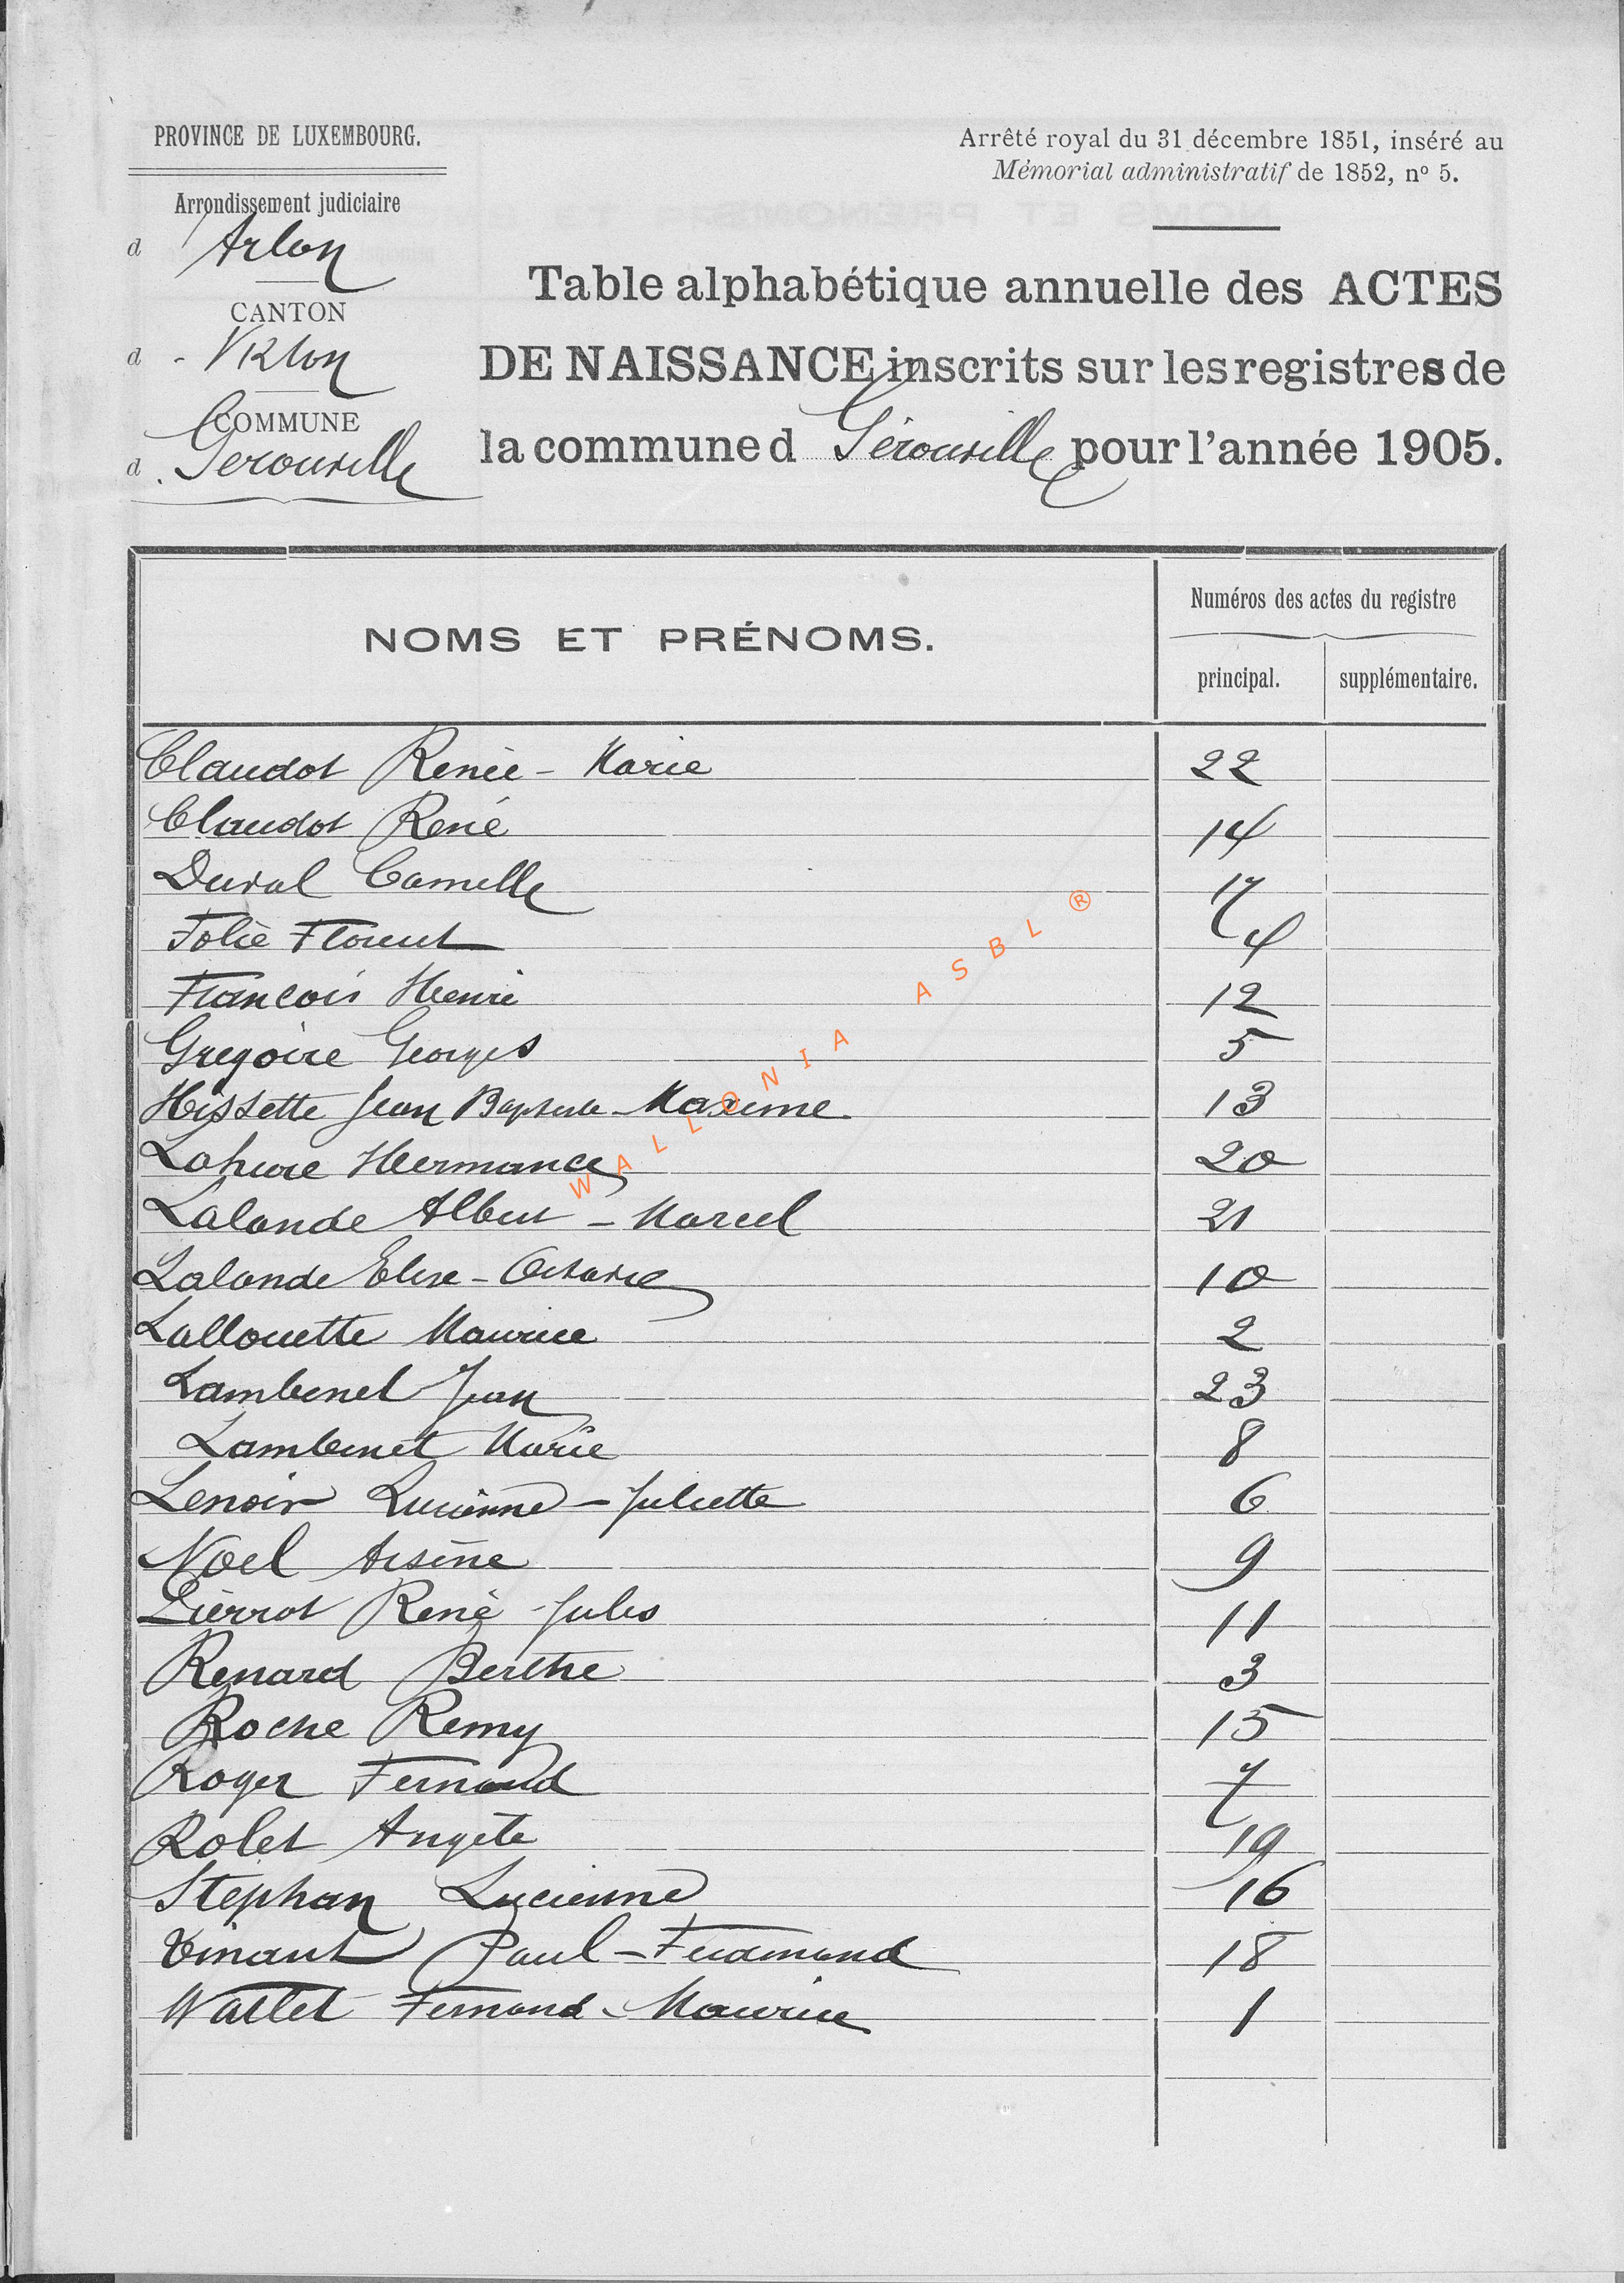 PROVINCE DE LUXEMBOURG.
Arrondissement judiciaire
d Arlon
CANTON
d Virton
COMMUNE
d Gérouville
Arrêté royal du 31 décembre 1851, inséré au
Mémorial administratif de 1852, nº 5.
Table alphabétique annuelle des ACTES
DE NAISSANCE inscrits sur les registres de
la commune d Gérouville pour l'année 1905.
NOMS ET PRÉNOMS.
Numéros des actes du registre
principal. supplémentaire.
Claudot Renée - Marie 22
Claudot René 14
Duval Camille 17
Folie Florent 4
François Henri 12
Gregoire Georges 5
Hissette Jean Baptiste - Maxime 13
Lahure Hermance 20
Lalande Albert - Marcel 21
Lalande Elise - Octavie 10
Lallouette Maurice 2
Lambinet Jean 23
Lambinet Marie 8
Lenoir Lucienne - Juliette 6
Noel Arsène 9
Pierrot René - Jules 11
Renard Berthe 3
Roche Remy 15
Roger Fernand 7
Rolet Angèle 19
Stephan Lucienne 16
Tinant Paul - Ferdinand 18
Watlet Fernand - Maurice 1
WALLONIA ASBL ®